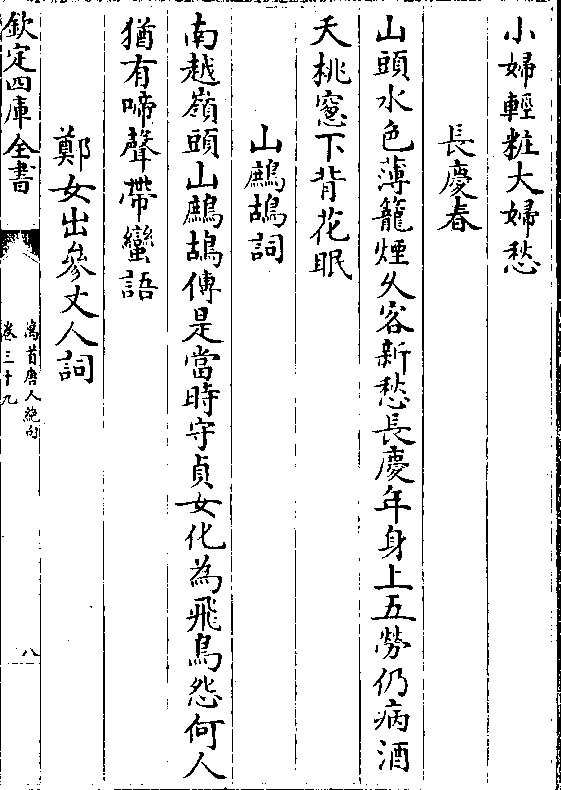 小婦輕粧大婦愁
長慶春
山頭水色薄籠煙久客新愁長慶年身上五勞仍病酒
夭桃窓下背花眠
山鷓鴣詞
南越嶺頭山鷓鴣傳是當時守貞女化為飛鳥怨何人
猶有啼聲帶蠻語
鄭女出參丈人詞
欽定四庫全書
萬首唐人絶句
卷三十九
八